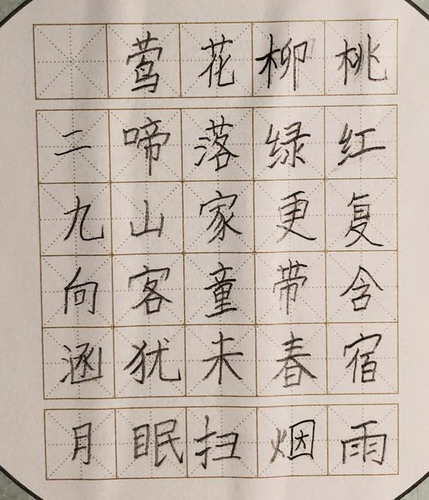 桃红复含宿雨
柳绿更带春烟
花落家童未扫
莺啼山客犹眠
二九向涵月